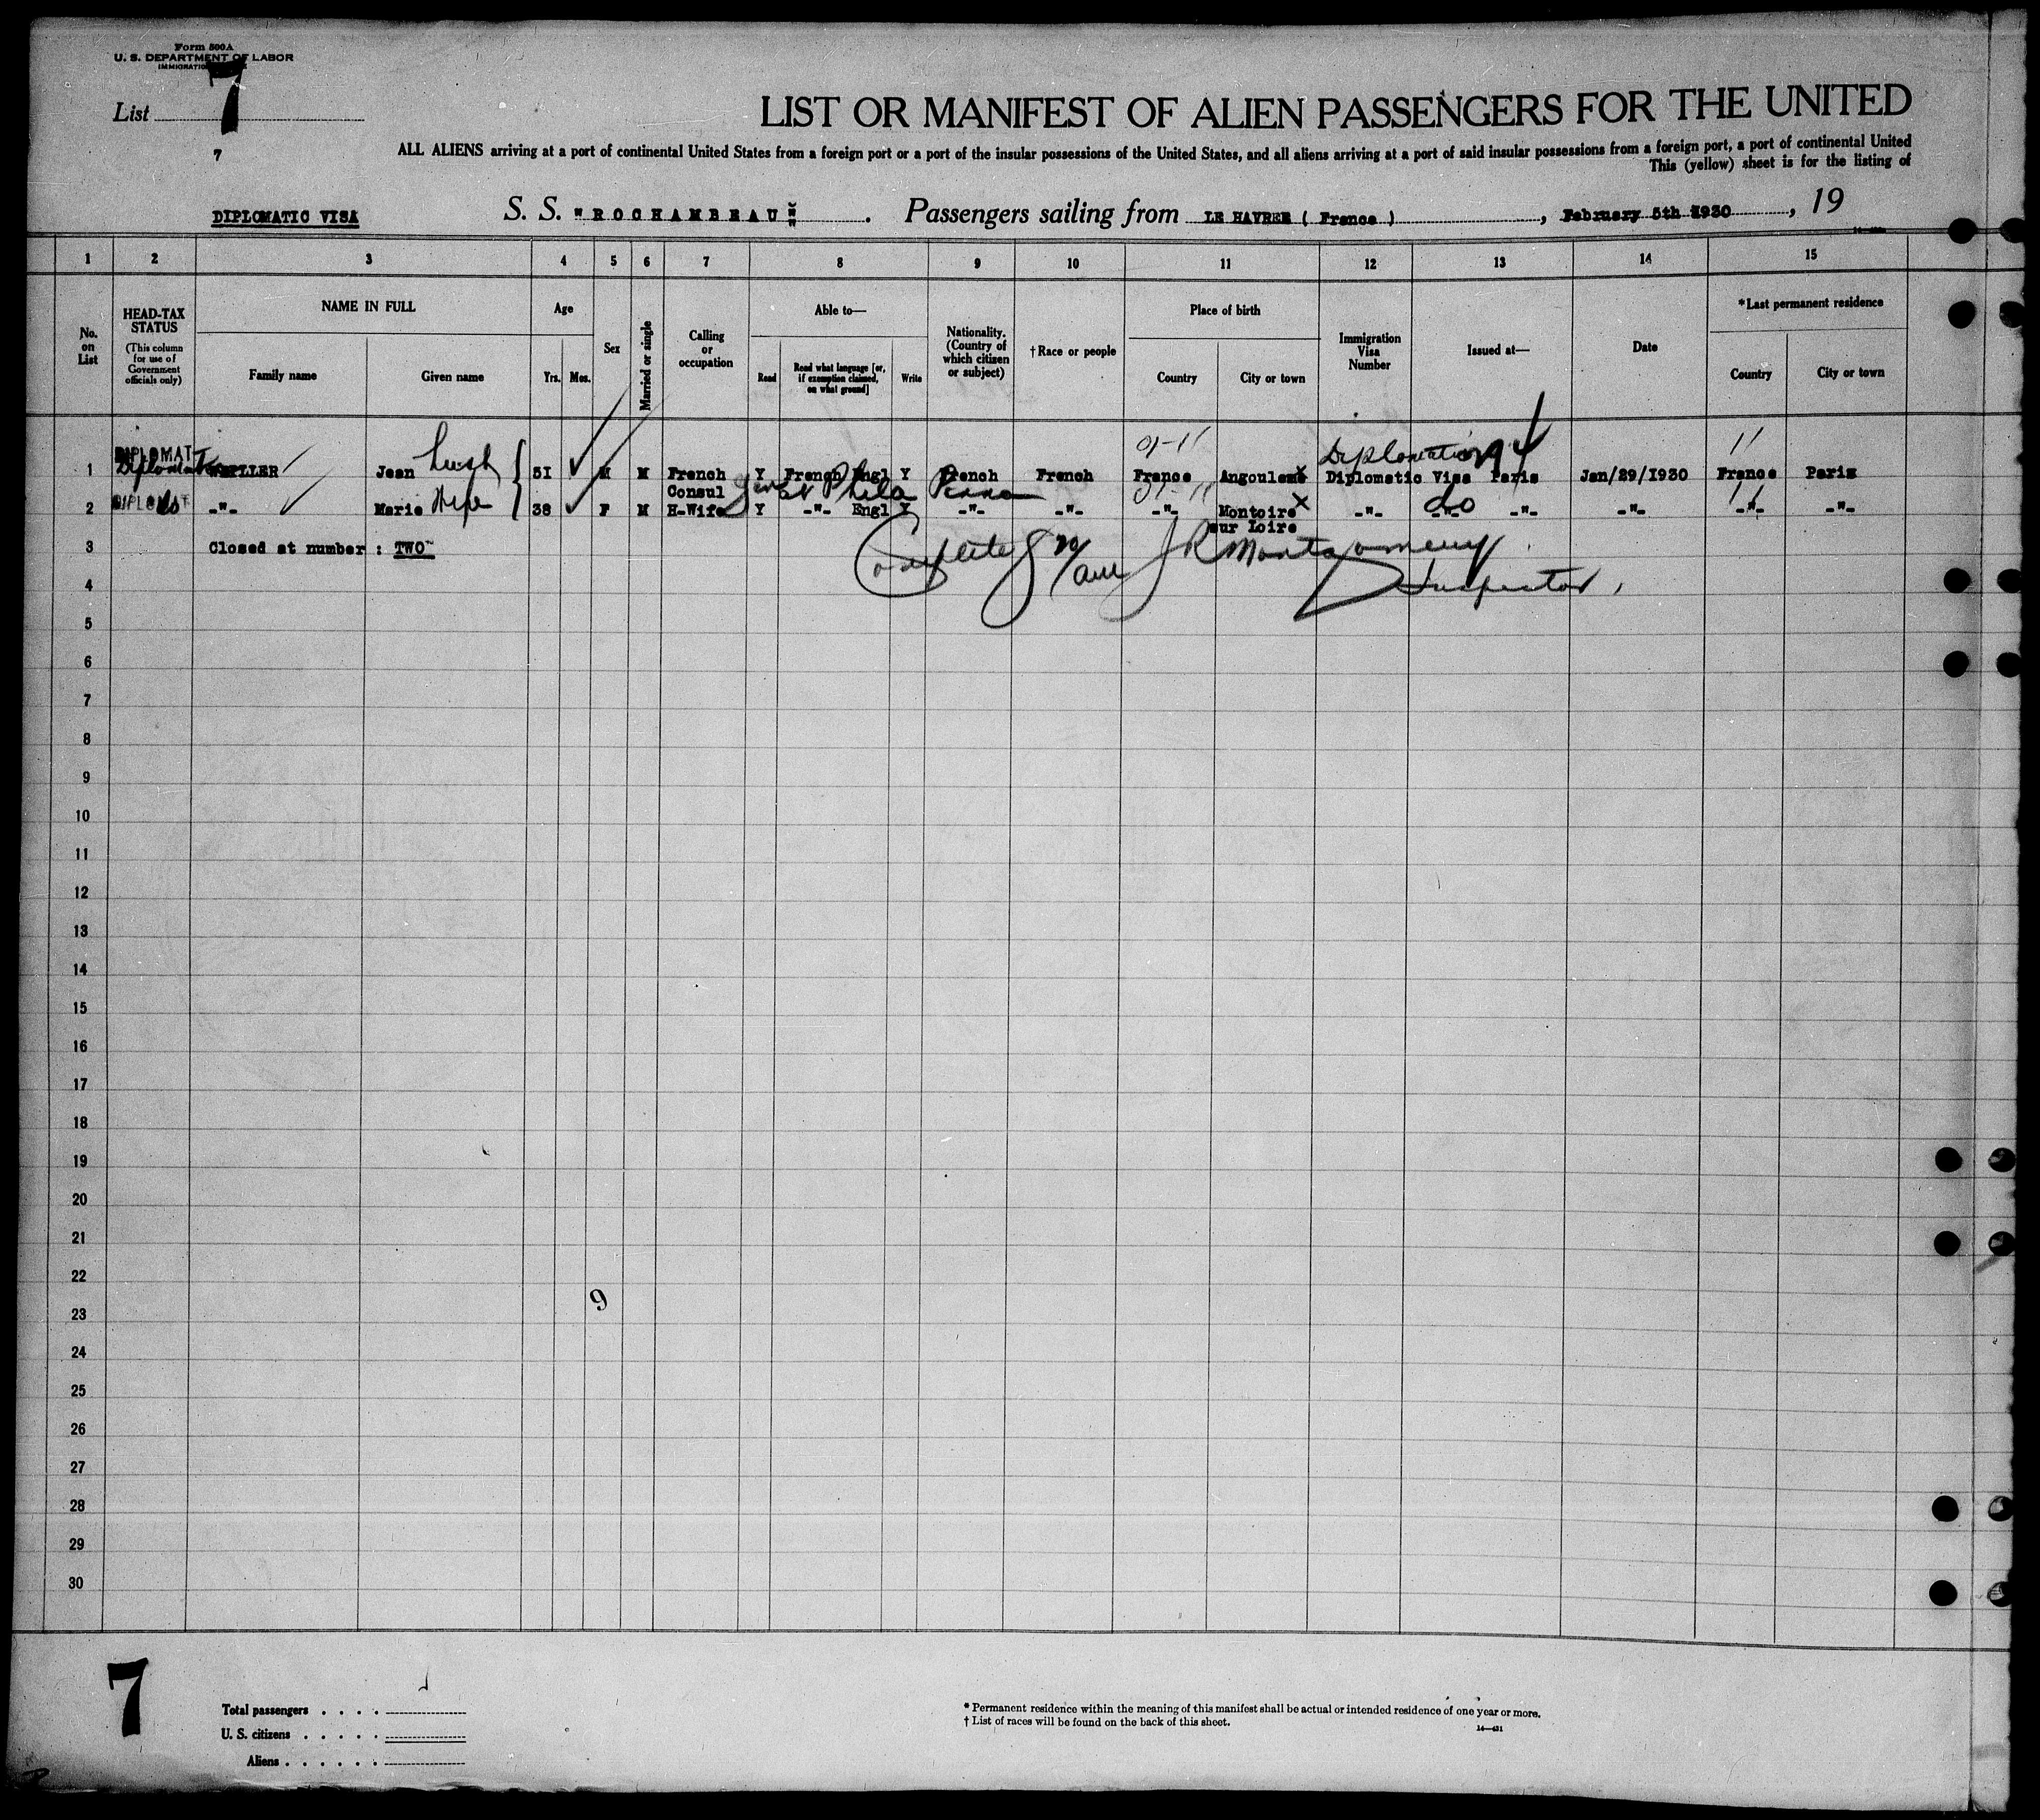 Form 500A
U. S. DEPARTMENT OF LABOR
List 7
7
LIST OR MANIFEST OF ALIEN PASSENGERS FOR THE UNITED
ALL ALIENS arriving at a port of continental United States from a foreign port or a port of the insular possessions of the United States, and all aliens arriving at a port of said insular possessions from a foreign port, a port of continental United
This (yellow) sheet is for the listing of
DIPLOMATIC VISA S. S. "ROCHAMBEAU" . Passengers sailing from LE HAVRE ( France ) , February 5th 1930 , 19
1 2 3 4 5 6 7 8 9 10 11 12 13 14 15
No. on List
HEAD-TAX STATUS
(This column for use of Government officials only)
NAME IN FULL
Family name
Given name
Age
Yrs. Mos.
Sex
Married or single
Calling or occupation
Able to—
Read
Read what language [or, if exemption claimed, on what ground]
Write
Nationality. (Country of which citizen or subject)
† Race or people
Place of birth
Country
City or town
Immigration Visa Number
Issued at—
Date
*Last permanent residence
Country
City or town
DIPLOMAT Diplomatic
1 Jean 51 M M French Consul Y French Engl Y French French France Angouleme Diplomatic Visa Paris Jan/29/1930 France Paris
Diplomatic
Phila Penna
2 DIPLOMAT do -"- Marie Wife 38 F M H-Wife Y -"- Engl Y -"- -"- -"- Montoire sur Loire -"- do -"- -"- -"- -"- -"-
3 Closed at number : TWO
Complete JR Montgomery
4 Inspector
5
6
7
8
9
10
11
12
13
14
15
16
17
18
19
20
21
22
23
9
24
25
26
27
28
29
30
7
Total passengers . . . .
U. S. citizens . . . . .
Aliens . . . . . .
* Permanent residence within the meaning of this manifest shall be actual or intended residence of one year or more.
† List of races will be found on the back of this sheet.
14—431